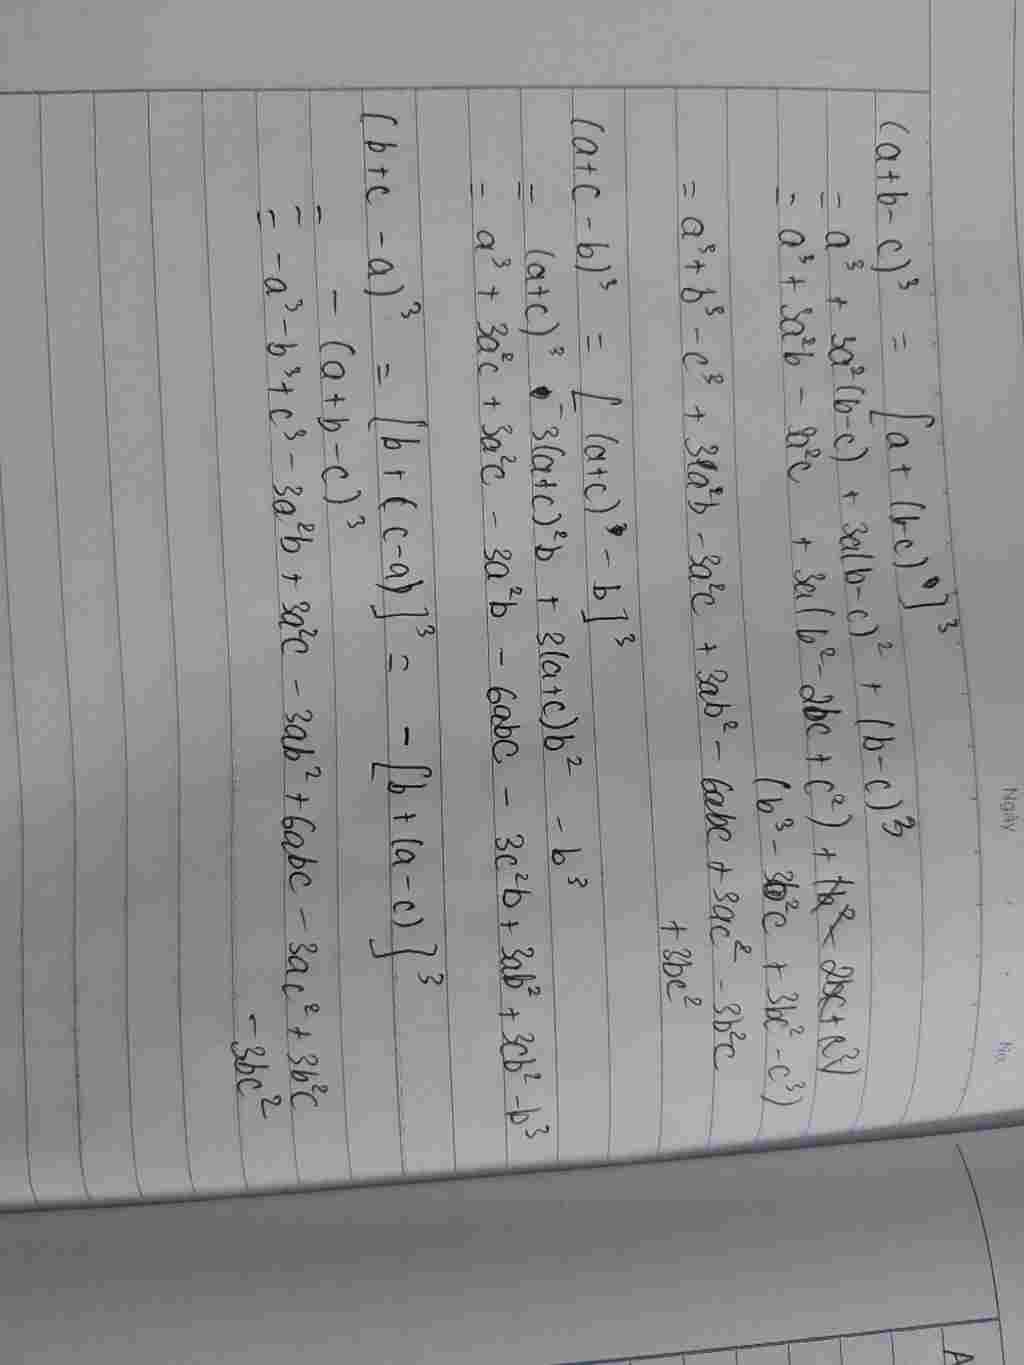 Ngày
No
(a+b-c)³ = [a+(b-c)]³
= a³ + 3a²(b-c) + 3a(b-c)² + (b-c)³
= a³ + 3a²b - 3a²c + 3a(b² - 2bc + c²) +
(b³ - 3b²c + 3bc² - c³)
= a³ + b³ - c³ + 3a²b - 3a²c + 3ab² - 6abc + 3ac² - 3b²c
+ 3bc²
(a+c-b)³ = [(a+c) - b]³
= (a+c)³ - 3(a+c)²b + 3(a+c)b² - b³
= a³ + 3a²c + 3a²c - 3a²b - 6abc - 3c²b + 3ab² + 3cb² - b³
(b+c-a)³ = [b+(c-a)]³ = -[b+(a-c)]³
= -(a+b-c)³
= -a³ - b³ + c³ - 3a²b + 3a²c - 3ab² + 6abc - 3ac² + 3b²c
- 3bc²
A